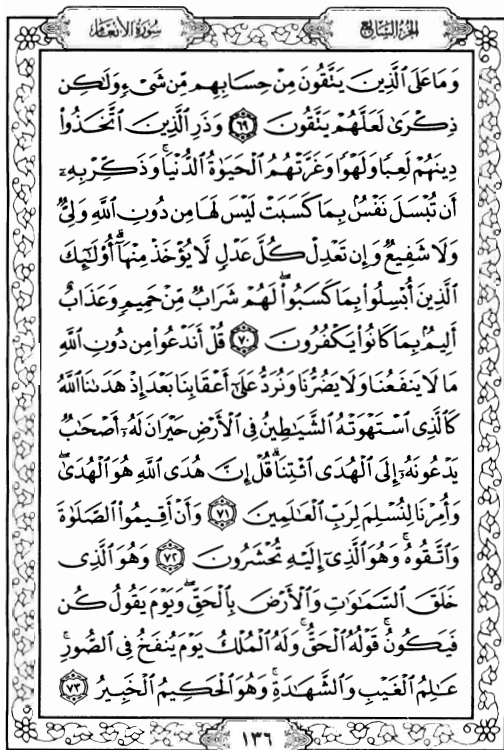 سورة الأنعام
الجزء السابع
وَمَا عَلَى ٱلَّذِينَ يَتَّقُونَ مِنْ حِسَابِهِم مِّن شَىْءٍ وَلَٰكِن
ذِكْرَىٰ لَعَلَّهُمْ يَتَّقُونَ ٦٩ وَذَرِ ٱلَّذِينَ ٱتَّخَذُوا۟
دِينَهُمْ لَعِبًا وَلَهْوًا وَغَرَّتْهُمُ ٱلْحَيَوٰةُ ٱلدُّنْيَا ۚ وَذَكِّرْ بِهِۦٓ
أَن تُبْسَلَ نَفْسٌۢ بِمَا كَسَبَتْ لَيْسَ لَهَا مِن دُونِ ٱللَّهِ وَلِىٌّ
وَلَا شَفِيعٌ وَإِن تَعْدِلْ كُلَّ عَدْلٍ لَّا يُؤْخَذْ مِنْهَآ ۗ أُو۟لَٰٓئِكَ
ٱلَّذِينَ أُبْسِلُوا۟ بِمَا كَسَبُوا۟ ۖ لَهُمْ شَرَابٌ مِّنْ حَمِيمٍ وَعَذَابٌ
أَلِيمٌۢ بِمَا كَانُوا۟ يَكْفُرُونَ ٧٠ قُلْ أَنَدْعُوا۟ مِن دُونِ ٱللَّهِ
مَا لَا يَنفَعُنَا وَلَا يَضُرُّنَا وَنُرَدُّ عَلَىٰٓ أَعْقَابِنَا بَعْدَ إِذْ هَدَىٰنَا ٱللَّهُ
كَٱلَّذِى ٱسْتَهْوَتْهُ ٱلشَّيَٰطِينُ فِى ٱلْأَرْضِ حَيْرَانَ لَهُۥٓ أَصْحَٰبٌ
يَدْعُونَهُۥٓ إِلَى ٱلْهُدَى ٱئْتِنَا ۗ قُلْ إِنَّ هُدَى ٱللَّهِ هُوَ ٱلْهُدَىٰ ۖ
وَأُمِرْنَا لِنُسْلِمَ لِرَبِّ ٱلْعَٰلَمِينَ ٧١ وَأَنْ أَقِيمُوا۟ ٱلصَّلَوٰةَ
وَٱتَّقُوهُ ۚ وَهُوَ ٱلَّذِىٓ إِلَيْهِ تُحْشَرُونَ ٧٢ وَهُوَ ٱلَّذِى
خَلَقَ ٱلسَّمَٰوَٰتِ وَٱلْأَرْضَ بِٱلْحَقِّ ۖ وَيَوْمَ يَقُولُ كُن
فَيَكُونُ ۚ قَوْلُهُ ٱلْحَقُّ ۚ وَلَهُ ٱلْمُلْكُ يَوْمَ يُنفَخُ فِى ٱلصُّورِ ۚ
عَٰلِمُ ٱلْغَيْبِ وَٱلشَّهَٰدَةِ ۚ وَهُوَ ٱلْحَكِيمُ ٱلْخَبِيرُ ٧٣
١٣٦